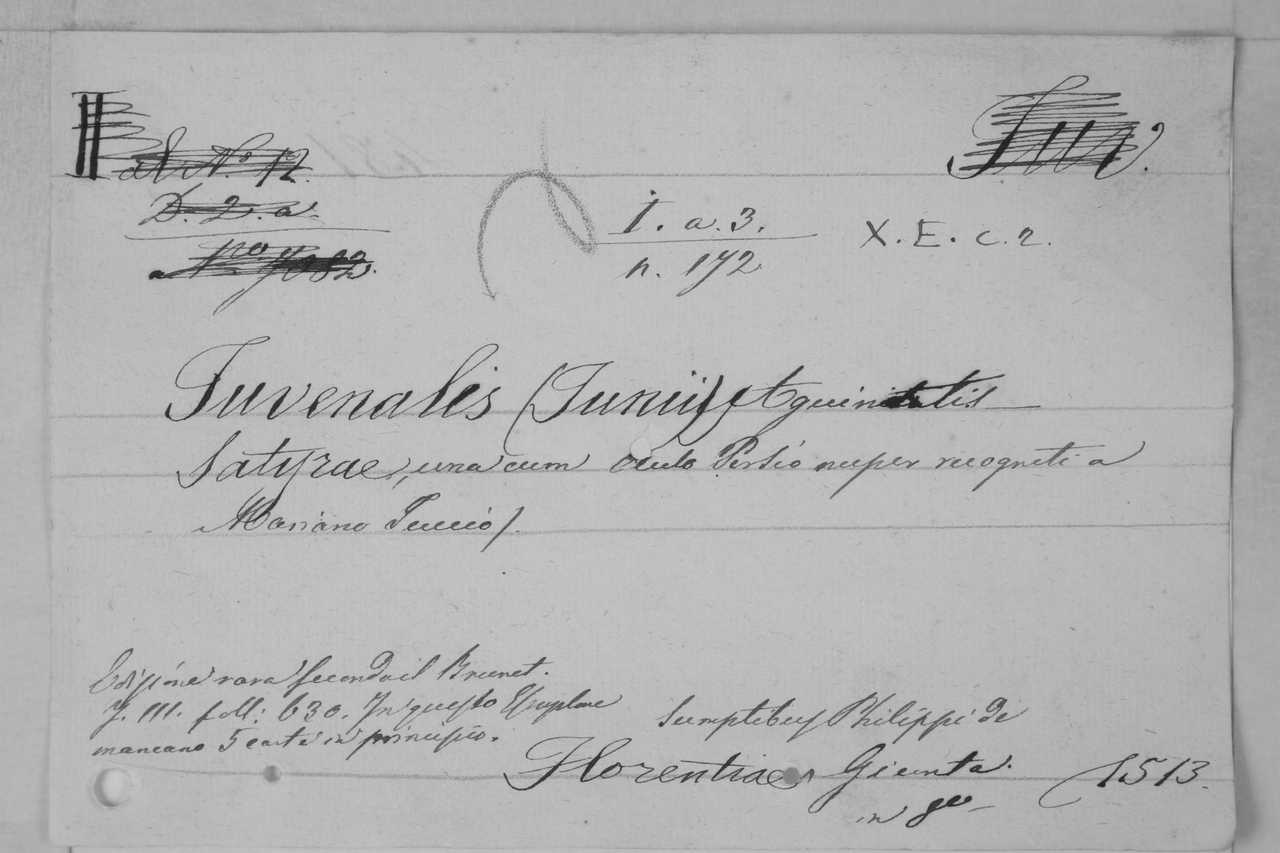 al No. 12
D. 2. a
I. a. 3.
n. 172
X. E. c. 2.
Juvenalis (Junii) Aquinatis
Satyrae, una cum Aulo Persio nuper recogniti a
Mariano Tuccio).
Edizione rara secondo il Brunet.
T. III. foll: 630. In questo Esemplare
mancano 5 carte in principio.
Sumptibus Philippi de
Florentiae Giunta. 1513.
in 8vo